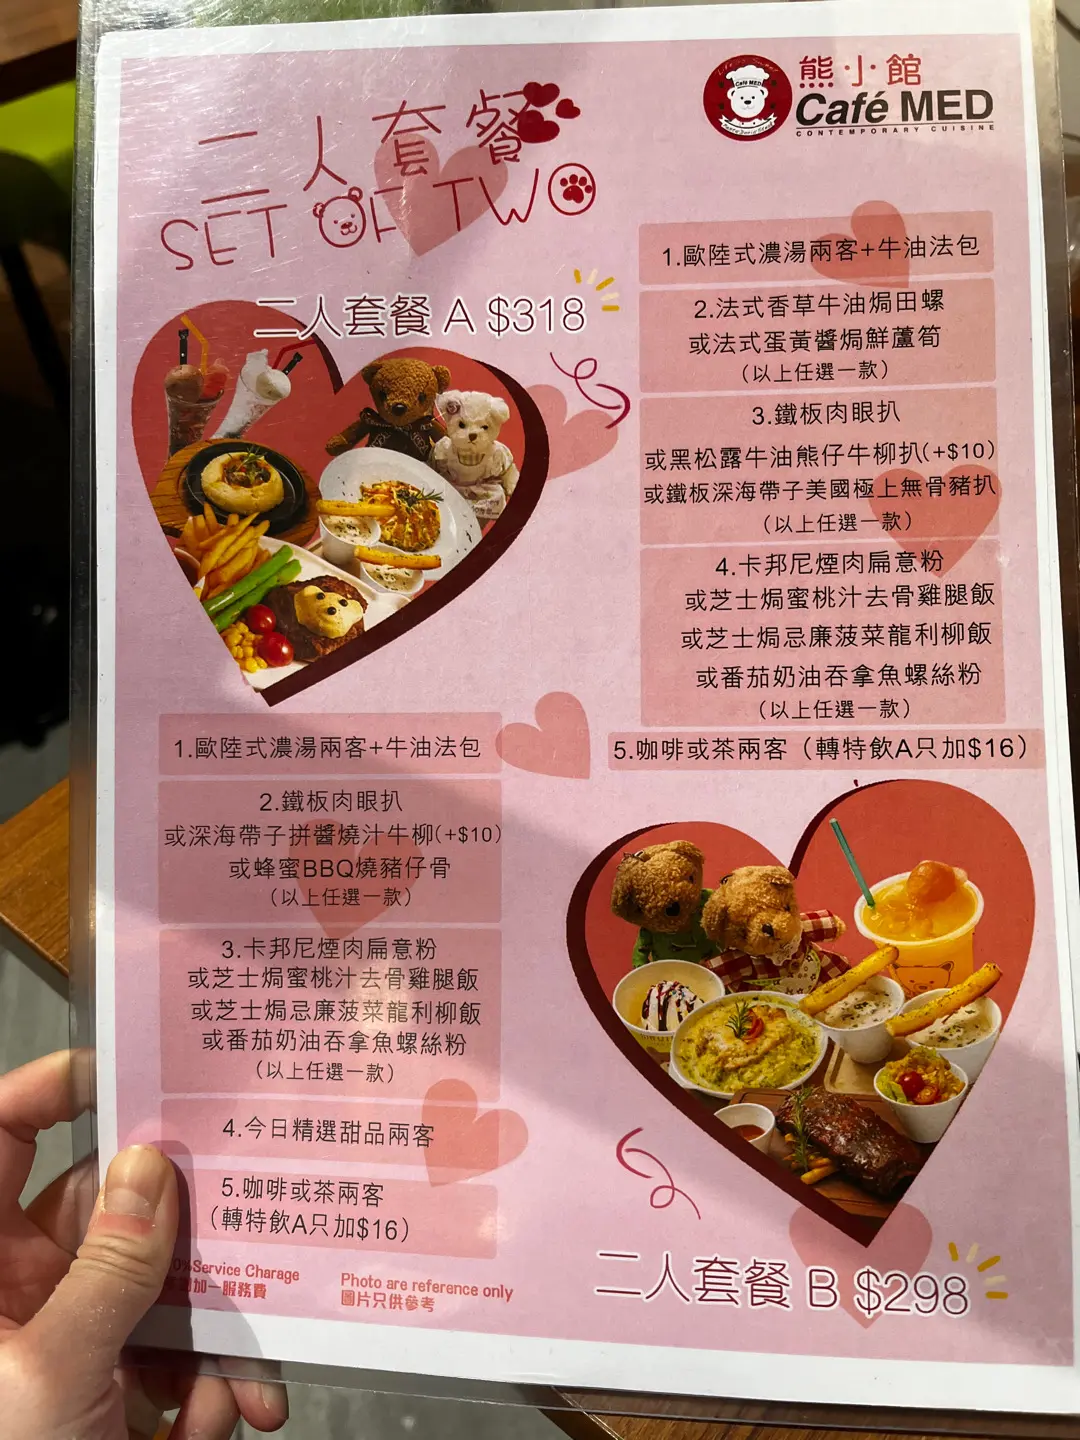 熊小館
Café MED
CONTEMPORARY CUISINE
二人套餐
SET OF TWO
二人套餐 A $318
1.歐陸式濃湯兩客+牛油法包
2.法式香草牛油焗田螺
或法式蛋黃醬焗鮮蘆筍
(以上任選一款)
3.鐵板肉眼扒
或黑松露牛油熊仔牛柳扒(+$10)
或鐵板深海帶子美國極上無骨豬扒
(以上任選一款)
4.卡邦尼煙肉扁意粉
或芝士焗蜜桃汁去骨雞腿飯
或芝士焗忌廉菠菜龍利柳飯
或番茄奶油吞拿魚螺絲粉
(以上任選一款)
5.咖啡或茶兩客（轉特飲A只加$16）
1.歐陸式濃湯兩客+牛油法包
2.鐵板肉眼扒
或深海帶子拼醬燒汁牛柳(+$10)
或蜂蜜BBQ燒豬仔骨
(以上任選一款)
3.卡邦尼煙肉扁意粉
或芝士焗蜜桃汁去骨雞腿飯
或芝士焗忌廉菠菜龍利柳飯
或番茄奶油吞拿魚螺絲粉
(以上任選一款)
4.今日精選甜品兩客
5.咖啡或茶兩客
（轉特飲A只加$16）
二人套餐 B $298
Service Charage
加一服務費
Photo are reference only
圖片只供參考